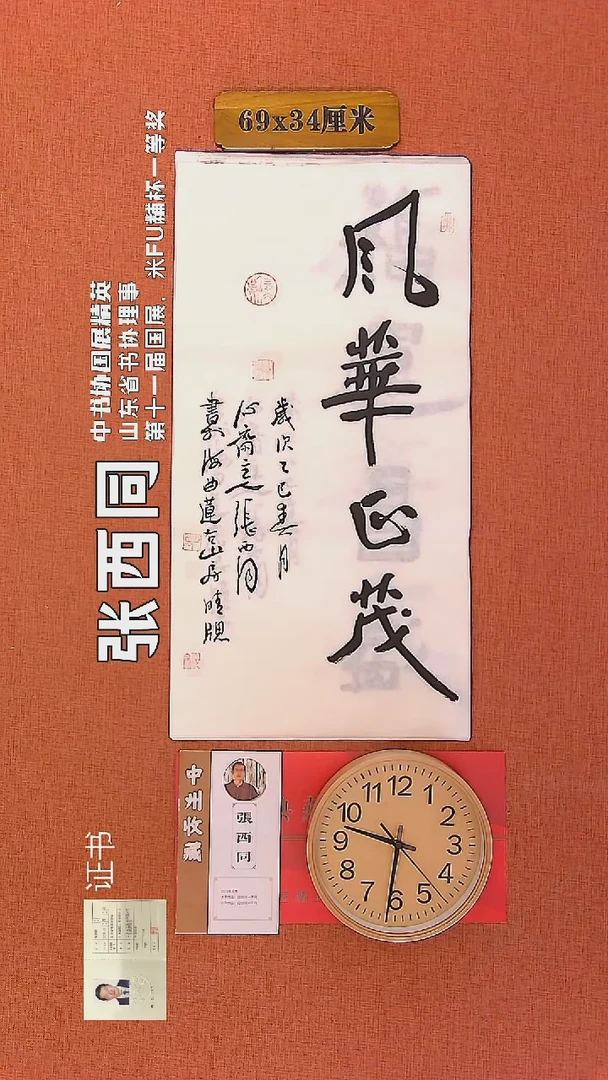 69x34厘米
風華正茂
歲次乙巳春月
心齋主張西同
書於海曲蓮古山房晴牕
張西同
中书协国展精英
山东省书协理事
第十一届国展、米FU黼杯一等奖
证书
中收生藏
張西同
12
1
2
3
4
5
6
7
8
9
10
11